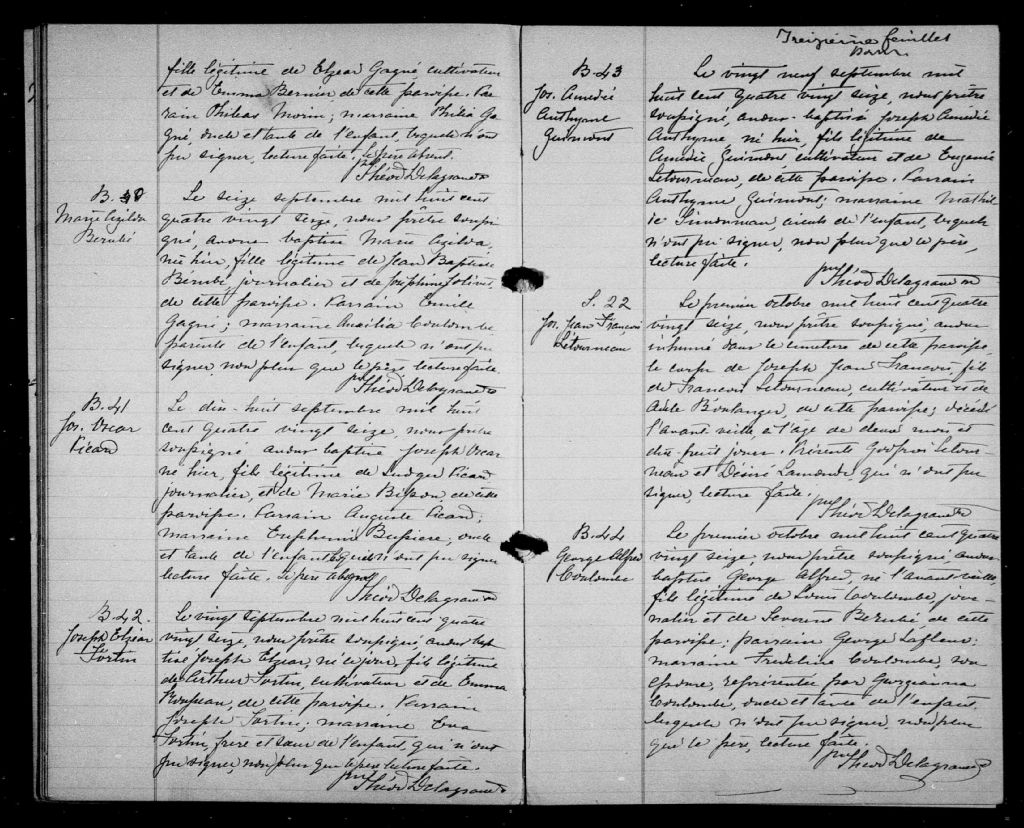 fille légitime de Elzéar Gagné cultivateur
et de Emma Bernier, de cette paroisse. Par-
rain Philéas Morin; marraine Philia Ga-
gné, oncle et tante de l'enfant, lesquels n'ont
pu signer, lecture faite. Le père absent.
Théod Delagrave ptre
B. 40
Marie Azilda
Bérubé
Le seize septembre mil huit cent
quatre vingt seize, nous prêtre soussi-
gné, avons baptisé Marie Azilda,
née hier, fille légitime de Jean Baptiste
Bérubé, journalier et de Joséphine
de cette paroisse. Parrain Emile
Gagné; marraine Auxilia Coulombe
parents de l'enfant, lesquels n'ont pu
signer, non plus que le père, lecture faite.
Théod Delagrave ptre
B. 41
Jos. Oscar
Picard
Le dix-huit septembre mil huit
cent quatre vingt seize, nous prêtre
soussigné avons baptisé Joseph Oscar
né hier, fils légitime de Ludger Picard
journalier, et de Marie de cette
paroisse. Parrain Auguste Picard;
marraine Euphémie oncle
et tante de l'enfant lesquels n'ont pu signer
lecture faite. Le père absent
Théod Delagrave ptre
B. 42.
Joseph Elzéar
Fortin
Le vingt septembre mil huit cent quatre
vingt seize, nous prêtre soussigné, avons bap-
tisé Joseph Elzéar, né ce jour, fils légitime
de Arthur Fortin, cultivateur et de Emma
Rousseau, de cette paroisse. Parrain
Joseph Fortin; marraine Eva
Fortin, frère et sœur de l'enfant, qui n'ont
pu signer, non plus que le père lecture faite.
Théod Delagrave ptre
Treizième feuillet
B. 43
Jos. Amédé
Anthyme
Guimont
Le vingt neuf septembre mil
huit cent quatre vingt seize, nous prêtre
soussigné, avons baptisé Joseph Amédé
Anthyme né hier, fils légitime de
Amédé Guimont cultivateur et de Eugénie
Létourneau, de cette paroisse. Parrain
Anthyme Guimont; marraine Mathil-
de aïeuls de l'enfant, lesquels
n'ont pu signer, non plus que le père,
lecture faite.
Théod Delagrave ptre
S. 22
Jos. Jean François
Létourneau
Le premier octobre mil huit cent quatre
vingt seize, nous prêtre soussigné, avons
inhumé dans le cimetière de cette paroisse,
le corps de Joseph Jean François, fils
de François Létourneau, cultivateur et de
Boulanger, de cette paroisse; décédé
l'avant veille, à l'âge de deux mois et
dix-huit jours. Présents Godfroi Létour-
neau et Désiré Lamonde, qui n'ont pu
signer, lecture faite.
Théod Delagrave ptre
B. 44
George Alfred
Coulombe
Le premier octobre mil huit cent quatre
vingt seize, nous prêtre soussigné, avons
baptisé George Alfred, né l'avant veille
fils légitime de Louis Coulombe, jour-
nalier et de Séverine Bérubé, de cette
paroisse; parrain George Lafleur;
marraine Frédéline Coulombe, son
épouse, représentée par Georgianna
Coulombe, oncle et tante de l'enfant
lesquels n'ont pu signer, non plus
que le père, lecture faite.
Théod Delagrave ptre